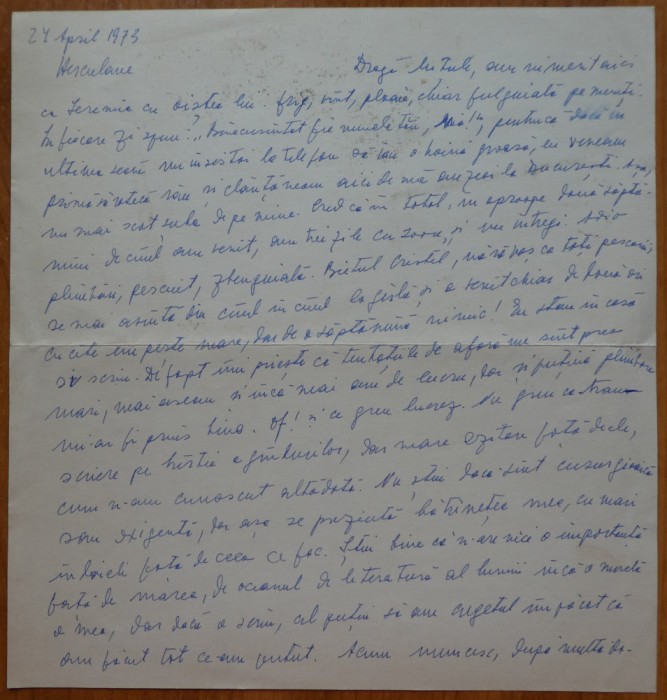 24 April 1973
Herculane Dragă am nimerit aici
ca Ieremia cu oiștea lui. frig, vânt, ploaie, chiar fulguială pe munți.
În fiecare zi spun: "Binecuvântat fie numele tău, pentrucă dacă în
ultima seară nu insistai la telefon să iau o haină groasă, eu veneam
primăvăratecă și clănțăneam aici de mă auzeai la București. Așa,
nu mai scot șuba de pe mine. Cred că în total, în aproape două săptă-
mâni de când am venit, am trei zile cu soare, și nu întregi. Adio
plimbări, pescuit, zbenguială. Bietul Cristil, năzdrăvan ca toți pescarii,
se mai avântă din când în când la gârlă, și a venit chiar de două ori
cu câte un pește mare, dar de o săptămână nimic! Eu stau în casă
și scriu. De fapt îmi priește că tentațiile de afară nu sunt prea
mari, mai aveam și încă mai am de lucru, dar și puțină plimbare
mi-ar fi prins bine. Of! și ce greu lucrez. Nu greu ca tran-
scriere pe hârtie a gândurilor, dar mare ezitare față de ele,
cum n-am cunoscut altădată. Nu știu dacă sunt
sau exigență, dar așa se prezintă bătrânețea mea, cu mari
îndoieli față de ceea ce fac. Știu bine că n-are nici o importanță
față de marea, de oceanul de literatură al lumii încă o
a mea, dar dacă o scriu, cel puțin să am cugetul împăcat că
am făcut tot ce-am putut. Acum muncesc, după multă